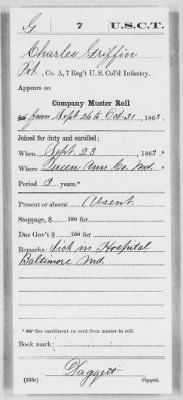 G 7 U.S.C.T.
Charles Griffin
Pvt., Co. A, 7 Reg't U. S. Col'd Infantry.
Appears on
Company Muster Roll
for from Sept 26 to Oct 31, 1863.
Joined for duty and enrolled:
When Sept. 23, 1863.*
Where Queen Ann Co. Md.
Period 3 years.*
Present or absent Absent
Stoppage, $ 100 for
Due Gov't $ 100 for
Remarks: Sick in Hospital
Baltimore Md.
* See enrollment on card from muster-in roll.
Book mark:
Daggett
(358c) Copyist.